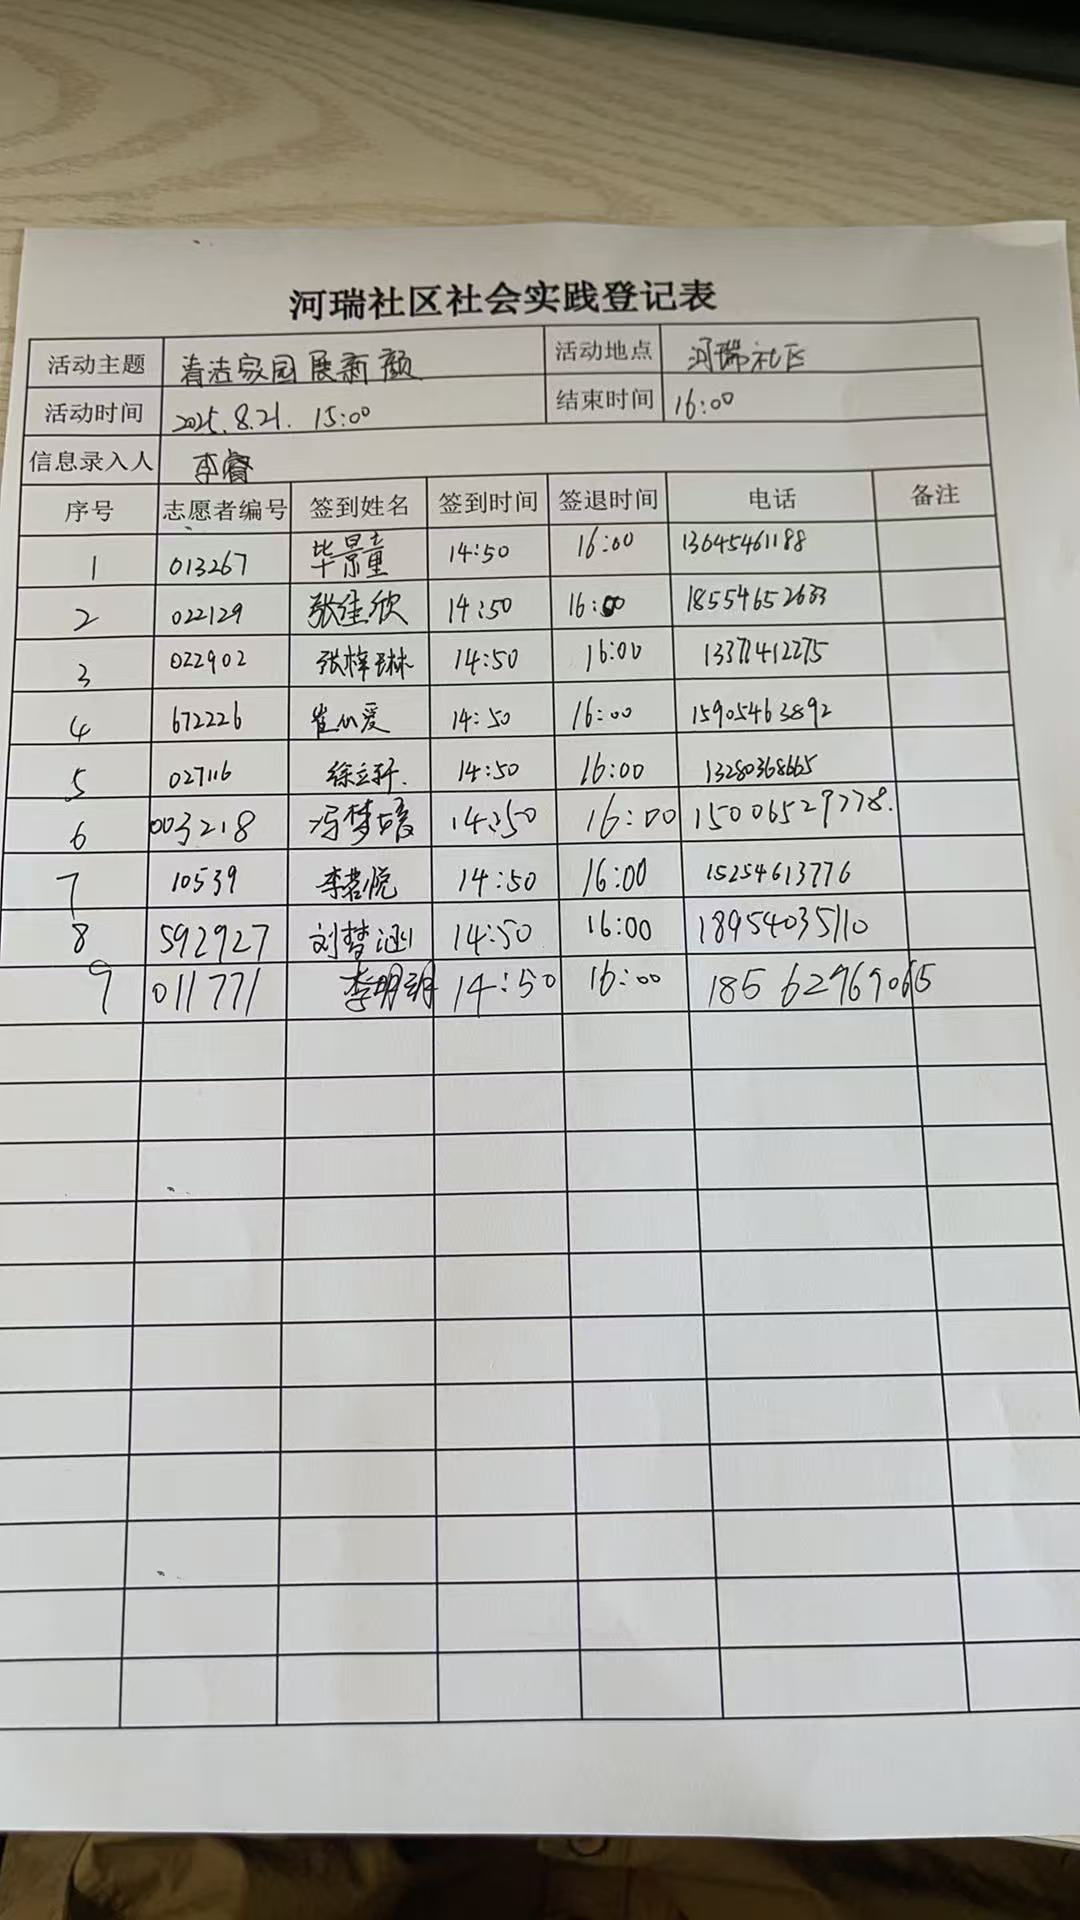 河瑞社区社会实践登记表
活动主题 清洁家园展新颜 活动地点 河瑞社区
活动时间 2025.8.21. 15:00 结束时间 16:00
信息录入人 李睿
序号 志愿者编号 签到姓名 签到时间 签退时间 电话 备注
1 013267 毕景童 14:50 16:00 13645461188
2 022129 张佳欣 14:50 16:00 18554652633
3 022902 张梓琳 14:50 16:00 13371412275
4 672226 崔心爱 14:50 16:00 15905463892
5 027116 徐立轩. 14:50 16:00 13280368665
6 003218 冯梦 14:50 16:00 15006529778.
7 10539 李若悦 14:50 16:00 15254613776
8 592927 刘梦涵 14:50 16:00 18954035110
9 011771 李明玥 14:50 16:00 18562969065